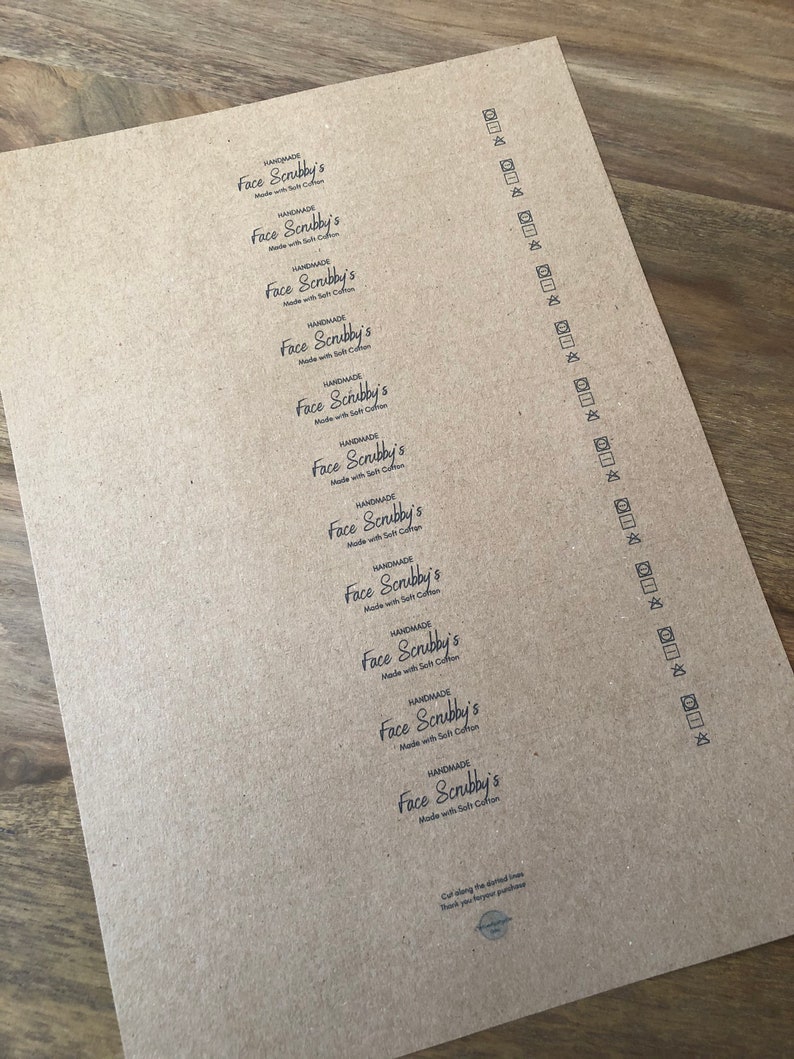 HANDMADE
Face Scrubby's
Made with Soft Cotton
HANDMADE
Face Scrubby's
Made with Soft Cotton
HANDMADE
Face Scrubby's
Made with Soft Cotton
HANDMADE
Face Scrubby's
Made with Soft Cotton
HANDMADE
Face Scrubby's
Made with Soft Cotton
HANDMADE
Face Scrubby's
Made with Soft Cotton
HANDMADE
Face Scrubby's
Made with Soft Cotton
HANDMADE
Face Scrubby's
Made with Soft Cotton
HANDMADE
Face Scrubby's
Made with Soft Cotton
HANDMADE
Face Scrubby's
Made with Soft Cotton
HANDMADE
Face Scrubby's
Made with Soft Cotton
Cut along the dotted lines
Thank you foryour purchase